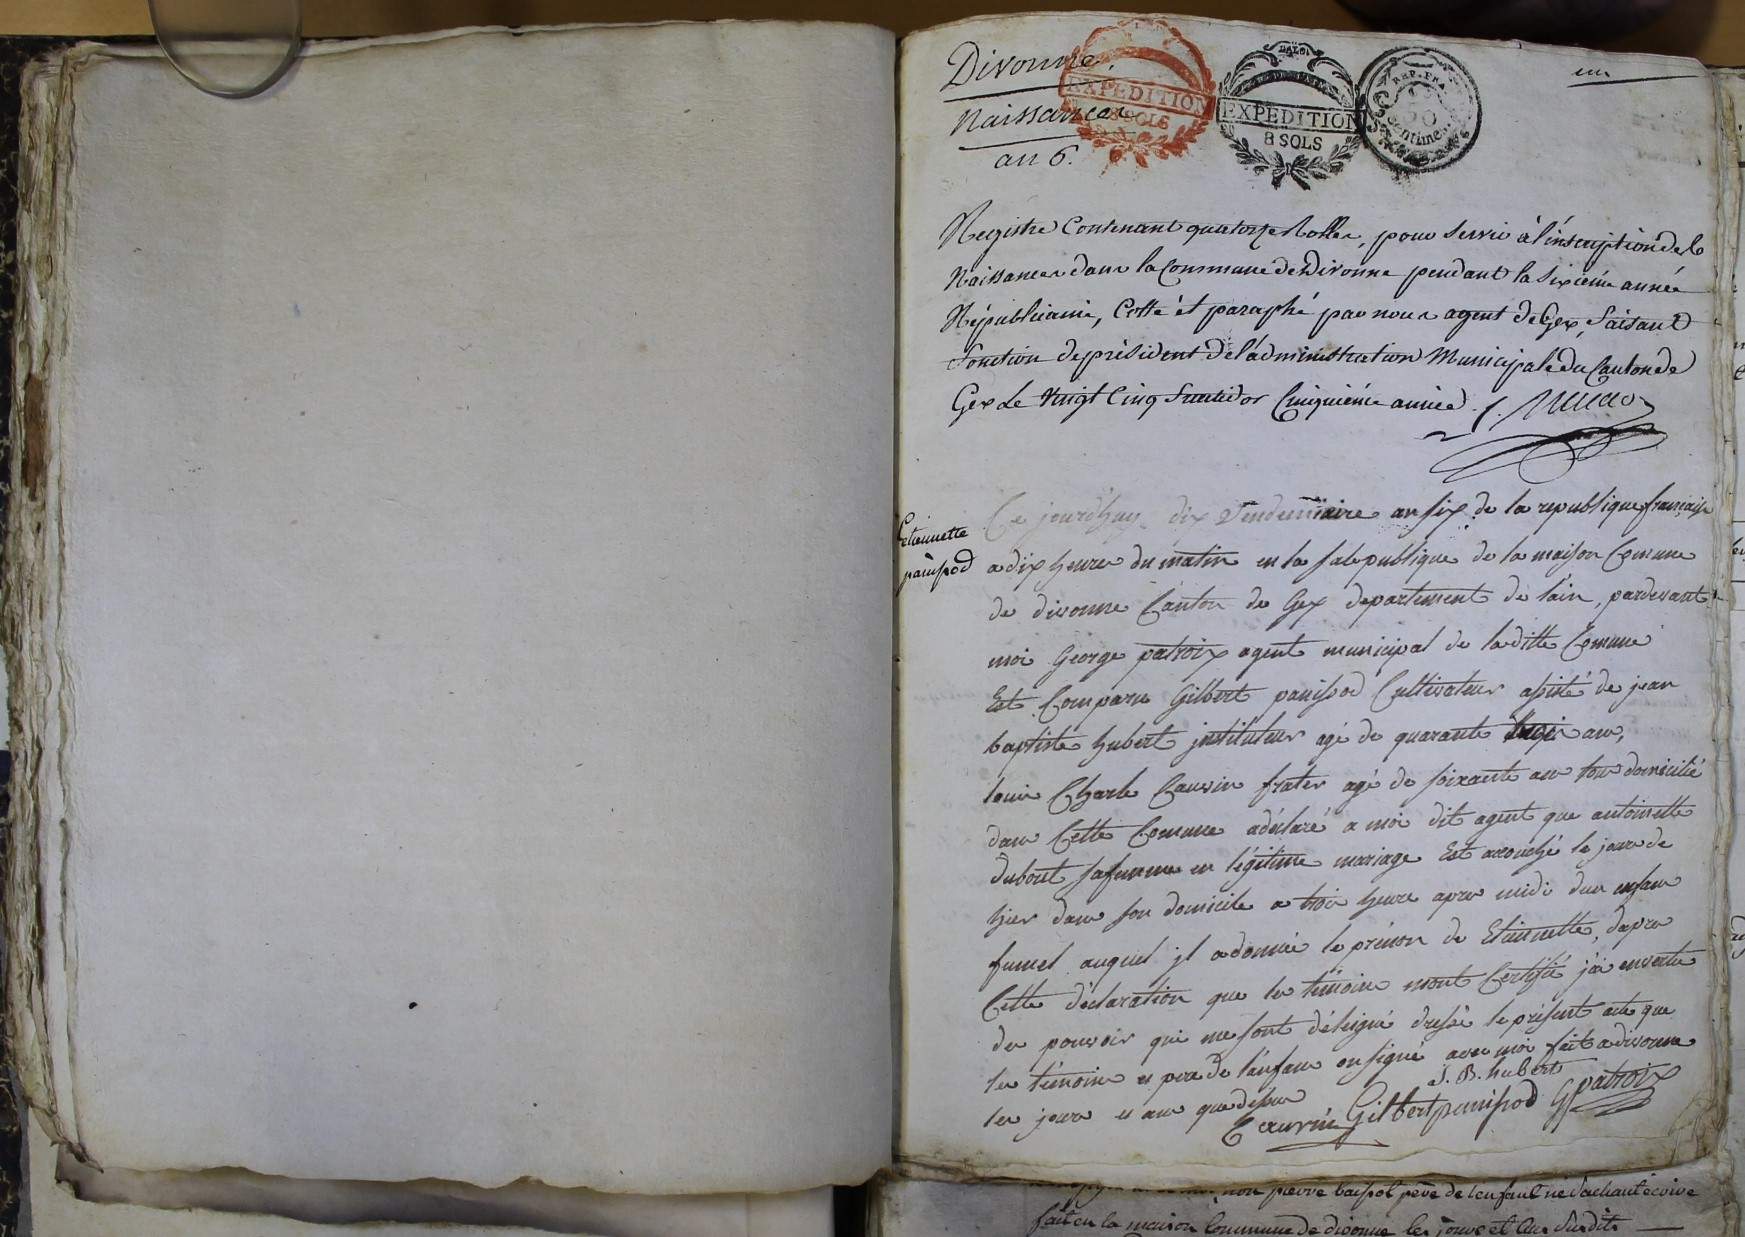 Divonne.
Naissances
an 6.
EXPEDITION
8 SOLS
EXPEDITION
8 SOLS
REP. FRA.
50
Centimes
un
Registre Contenant quatorze Rolles, pour servir à l'inscription des
Naissances dans la Commune de Divonne pendant la sixième année
Républicaine, Cotté et paraphé par nous agent de Gex, faisant
fonction de président de l'administration Municipale du Canton de
Gex le vingt Cinq fructidor Cinquième année.
Etiennette
panissod
Ce jourdhuy dix Vendemiaire an six de la republique française
a dix heures du matin en la sale publique de la maison Comune
de divonne Canton de Gex departement de lain, pardevant
moi George patroix agent municipal de laditte Comune
Est Comparu Gilbert panissod Cultivateur assisté de jean
baptiste hubert jnstituteur agé de quarante ans,
louis Charle Cauvin frater agé de soixante ans tous domicilié
dans Cette Comune a déclaré a moi dit agent que antoinette
dubout sa femme en légitime mariage Est accouché le jour de
hier dans son domicile a trois heure apres midi dun enfans
fumel auquel jl a donnée le prénon de Etiennette, dapres
Cette déclaration que les témoins mont Certifié jái en vertu
des pouvoir qui me sont délégué dressé le présent acte que
les témoins et pere de l'enfans on signé avec moi fait a divonne
les jours et an que dessus
J. B. hubert
Cauvin Gilbert panissod G patroix
non pierre baissot père de lenfant ne sachant écrire
fait en la maison Commune de divonne les jours et an Susdits